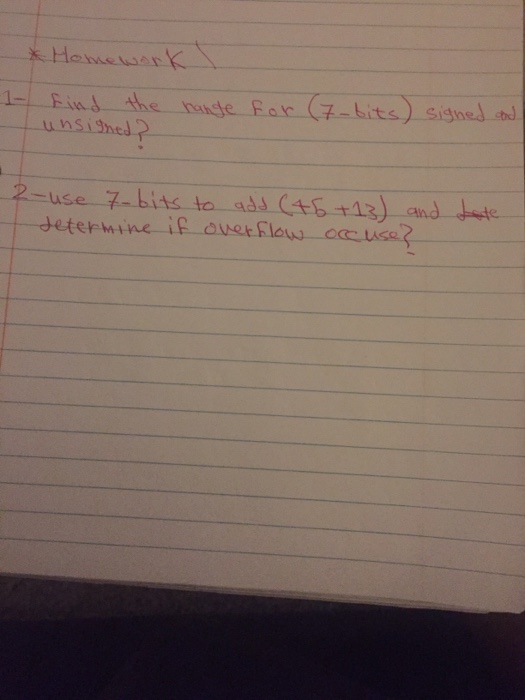 * Homework \
1- Find the range for (7-bits) signed and
unsigned?
2-use 7-bits to add (+5 +13) and
determine if overflow occuse?